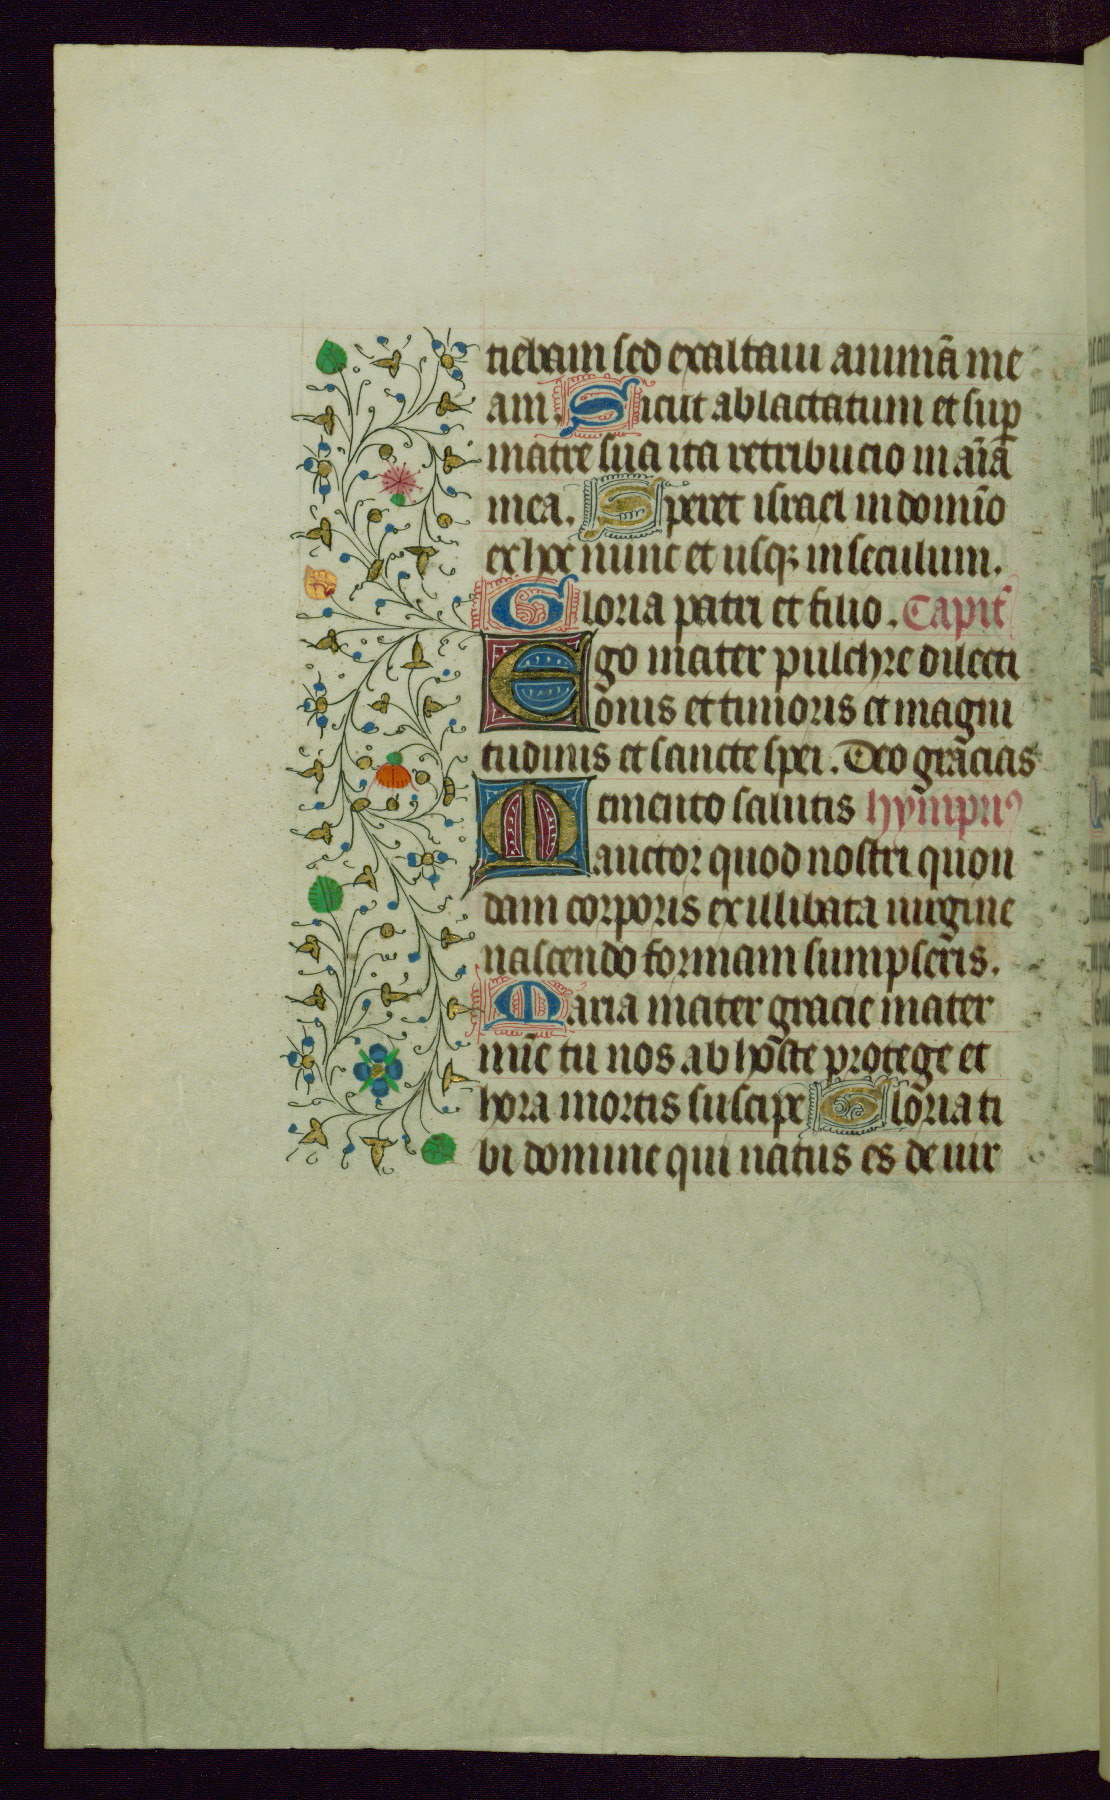 tiebam sed exaltaui animā me
am. Sicut ablactatum et sup
matre sua ita retribucio in aīā
mea. Speret israel in domīo
ex hoc nunc et usq; in seculum.
Gloria patri et filio. Capit̄
Ego mater pulchre dilecti
onis et timoris et magni
tudinis et sancte spei. Deo grācias
Memento salutis hympnꝰ
auctor quod nostri quon
dam corporis ex illibata uirgine
nascendo formam sumpseris.
Maria mater gracie mater
mīe tu nos ab hoste protege et
hora mortis suscipe Gloria ti
bi domine qui natus es de uir